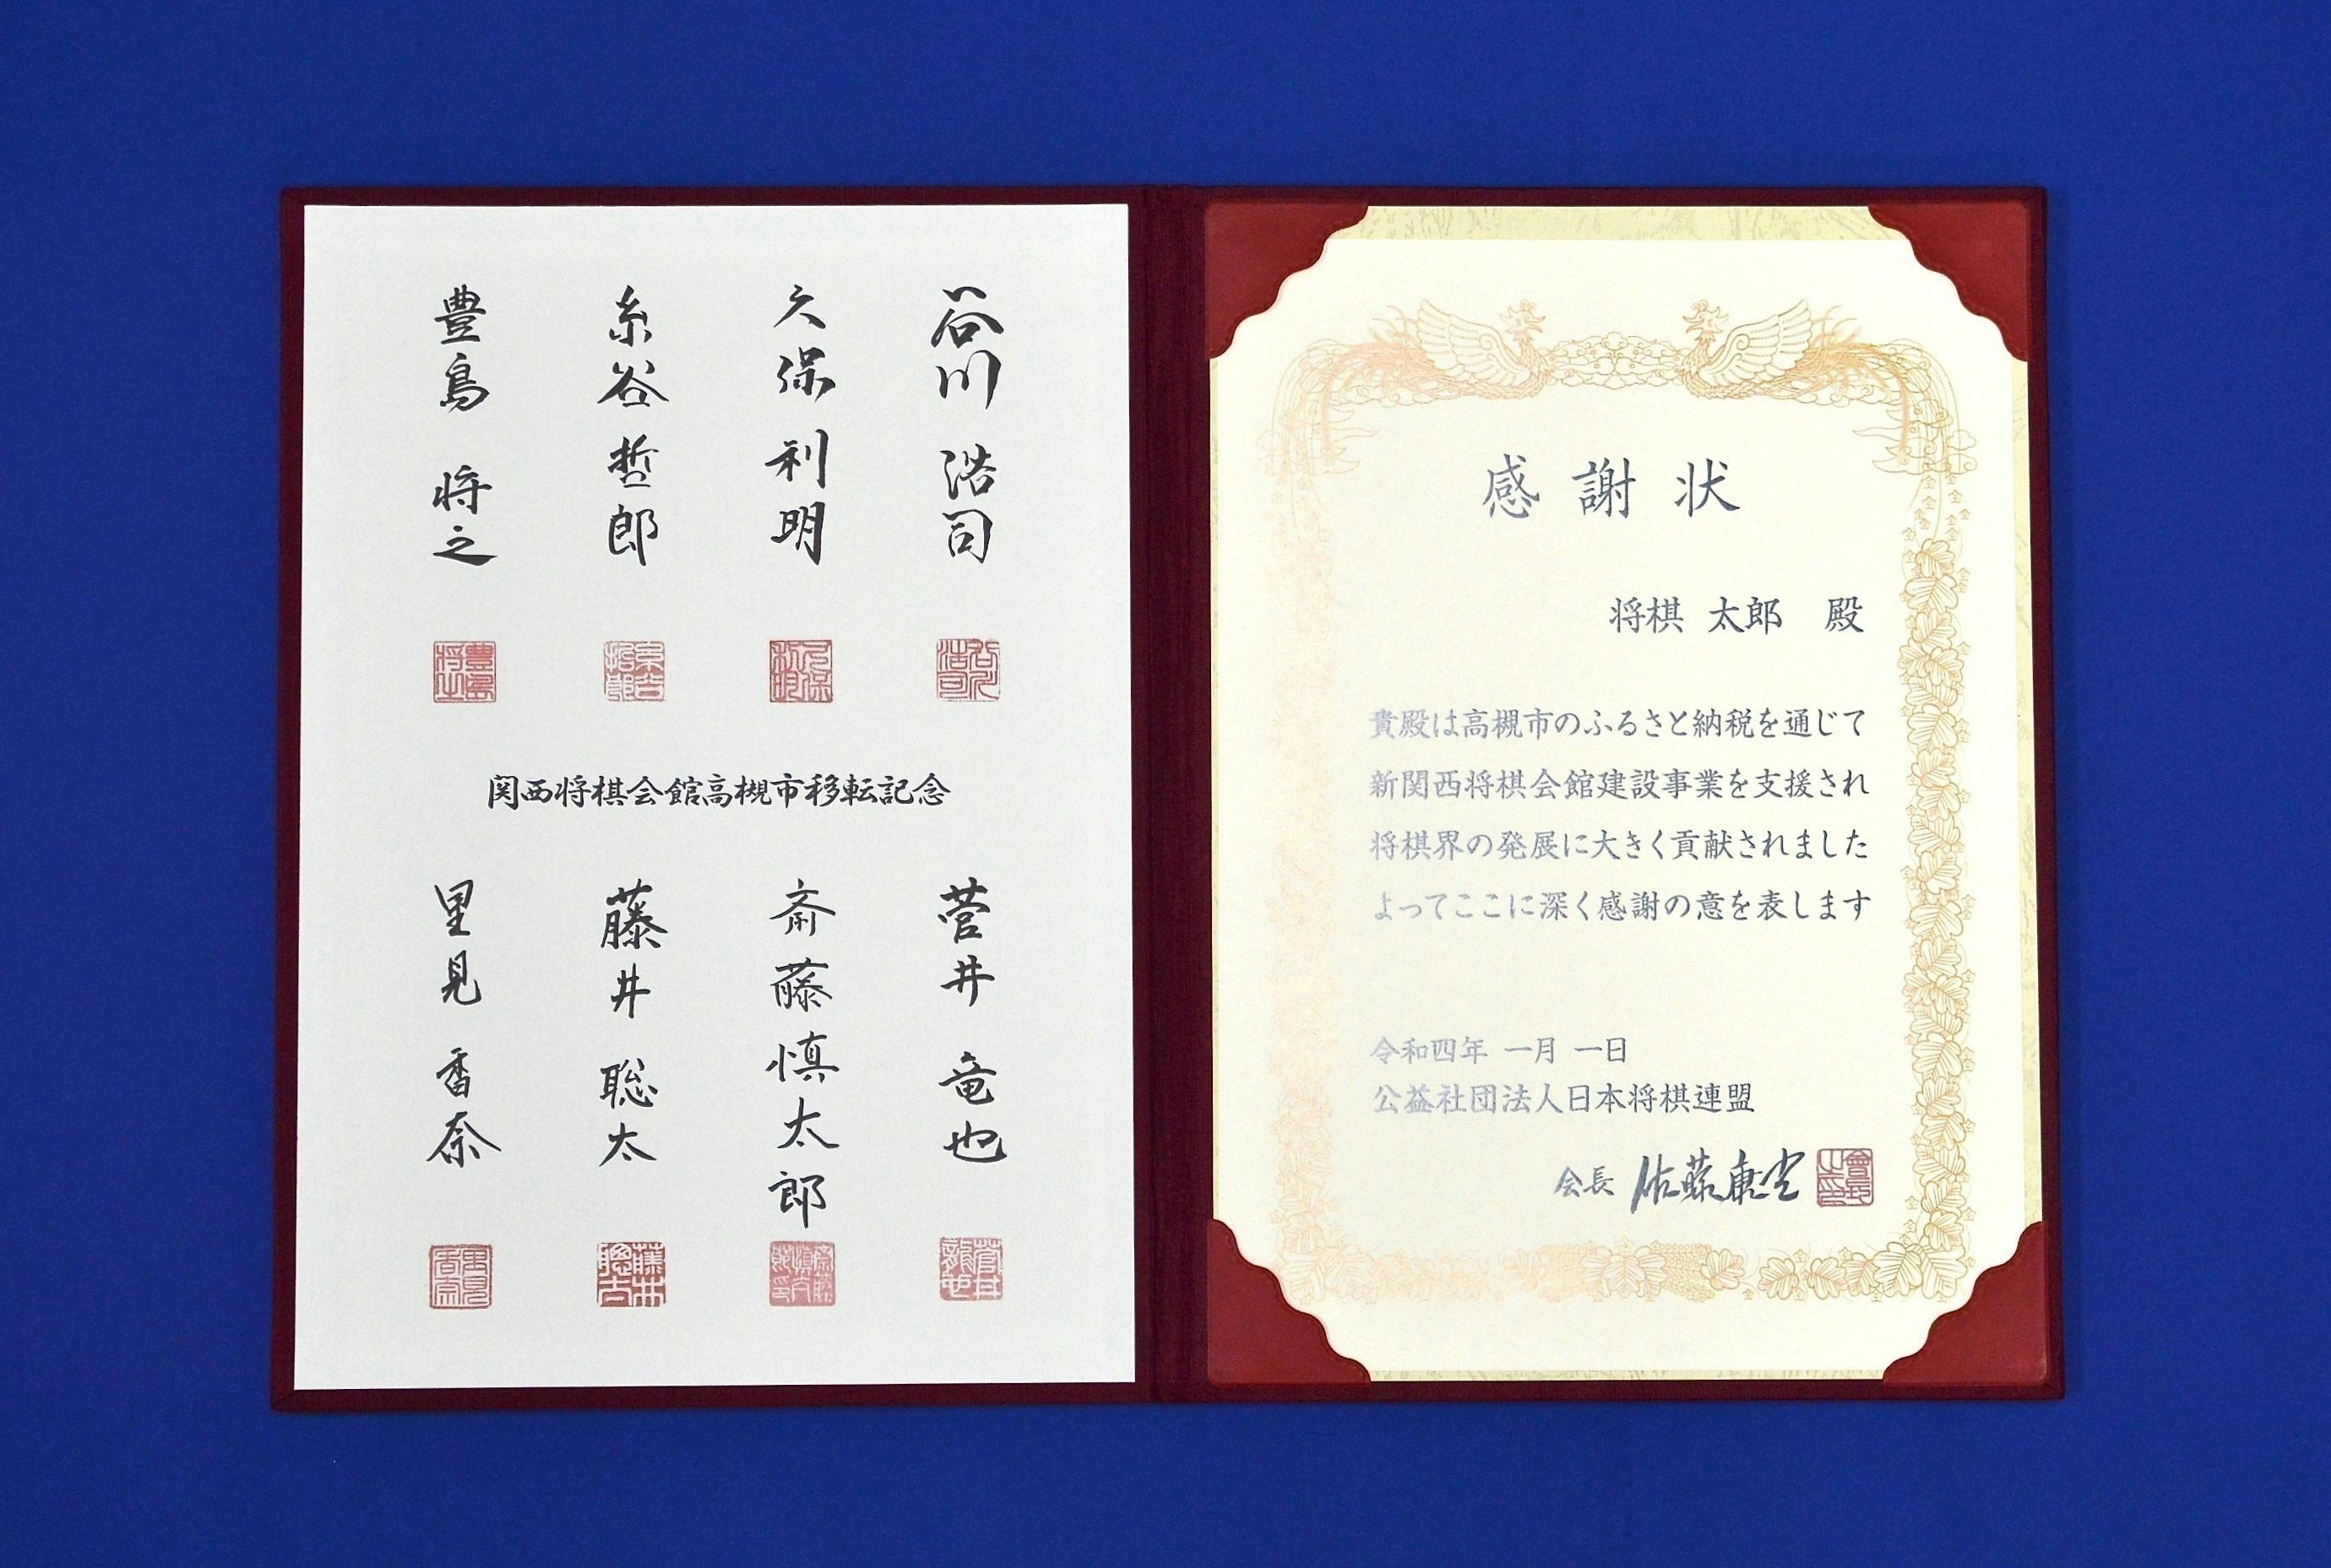 谷川 浩司
久保 利明
糸谷 哲郎
豊島 将之
関西将棋会館高槻市移転記念
菅井 竜也
斎藤慎太郎
藤井 聡太
里見 香奈
感謝状
将棋 太郎 殿
貴殿は高槻市のふるさと納税を通じて
新関西将棋会館建設事業を支援され
将棋界の発展に大きく貢献されました
よってここに深く感謝の意を表します
令和四年 一月 一日
公益社団法人日本将棋連盟
会長 佐藤康光